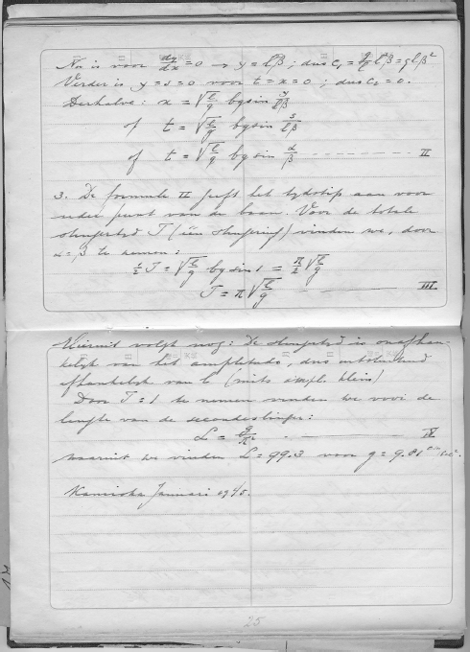 Nu is voor dy/dx = 0 → y = lβ ; dus c₁ = g/l l²β² = glβ²
Verder is y = s = 0 voor t = x = 0 ; dus c₂ = 0.
Derhalve: x = √(l/g) bg sin y/lβ
of t = √(l/g) bg sin s/lβ
of t = √(l/g) bg sin α/β II
3. De formule II geeft het tijdstip aan voor
ieder punt van de baan. Voor de totale
slingertijd T (één slingering) vinden we, door
α = β te nemen:
½T = √(l/g) bg sin 1 = π/2 √(l/g)
T = π √(l/g) III
Hieruit volgt nog: De slingertijd is onafhan-
kelijk van het amplitudo, dus uitsluitend
afhankelijk van l (mits ampl. klein)
Door T = 1 te nemen vinden we voor de
lengte van de secondeslinger:
L = g/π² IV
waaruit we vinden L = 99.3 voor g = 9.81
Januari
25